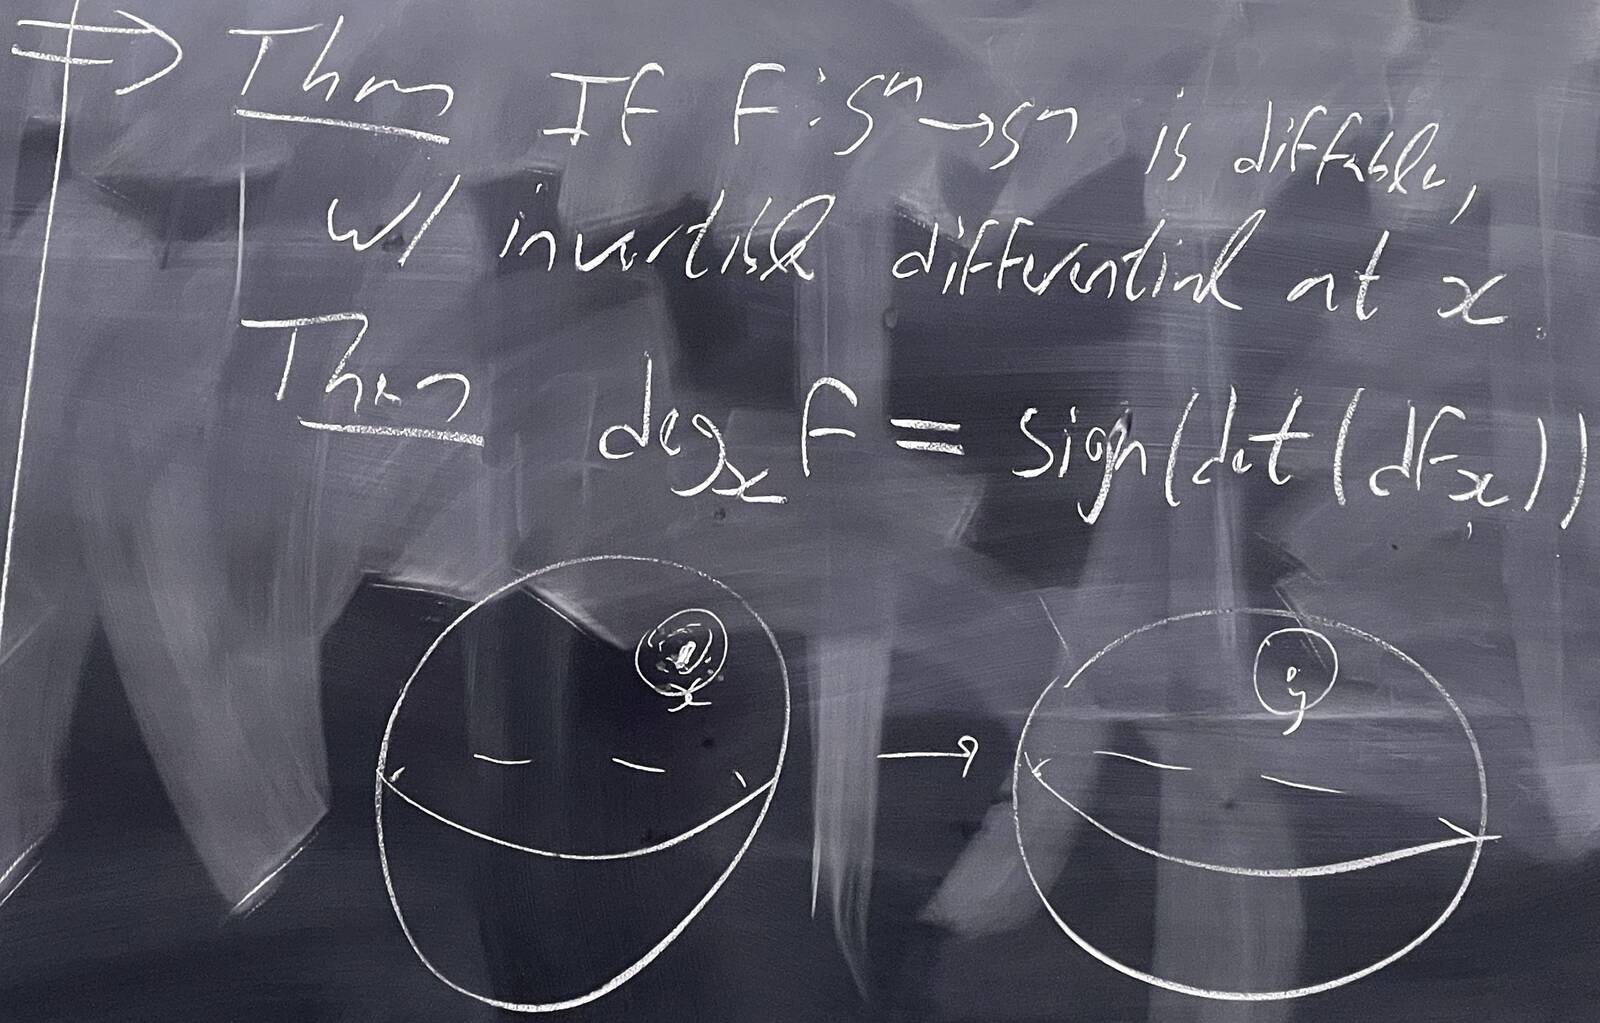 ⇒ Thm If F: Sⁿ → Sⁿ is diffable,
w/ invertible differential at x.
Then degₓ F = sign(det(dFₓ))
x → y